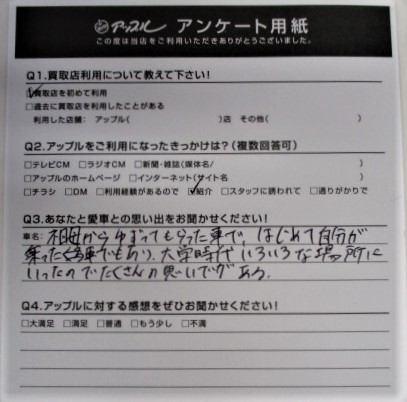 アップル アンケート用紙
この度は当店をご利用いただきありがとうございました。
Q1.買取店利用について教えて下さい!
☑買取店を初めて利用
□過去に買取店を利用したことがある
利用した店舗： アップル( )店 その他( )
Q2.アップルをご利用になったきっかけは?(複数回答可)
□テレビCM □ラジオCM □新聞・雑誌(媒体名/ )
□アップルのホームページ □インターネット(サイト名 )
□チラシ □DM □利用経験があるので ☑紹介 □スタッフに誘われて □通りがかりで
Q3.あなたと愛車との思い出をお聞かせください!
車名： 祖母からゆずってもらった車で、はじめて自分が
乗った車でもあり、大学時代いろいろな場所に
いったのでたくさんの思いでがある。
Q4.アップルに対する感想をぜひお聞かせください!
□大満足 □満足 □普通 □もう少し □不満